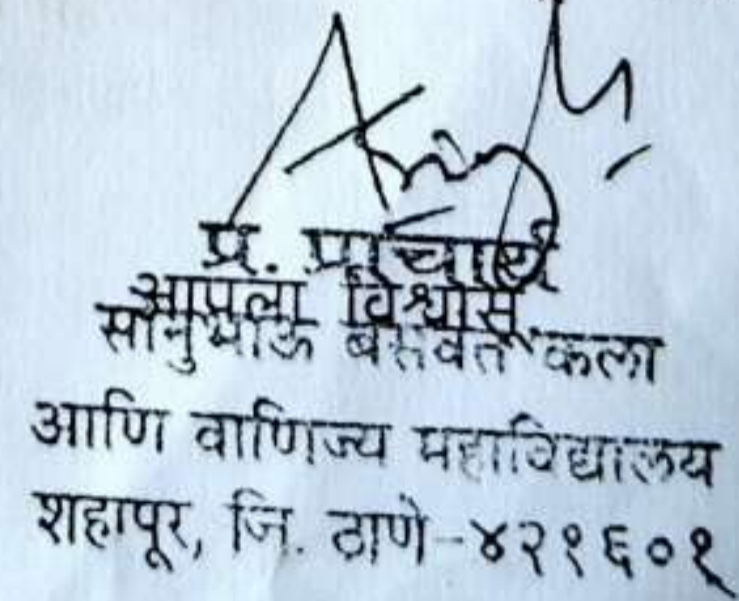 प्र. प्राचार्य
आपला विश्वासू
सोनुभाऊ बसवंत कला
आणि वाणिज्य महाविद्यालय
शहापूर, जि. ठाणे-४२१६०१